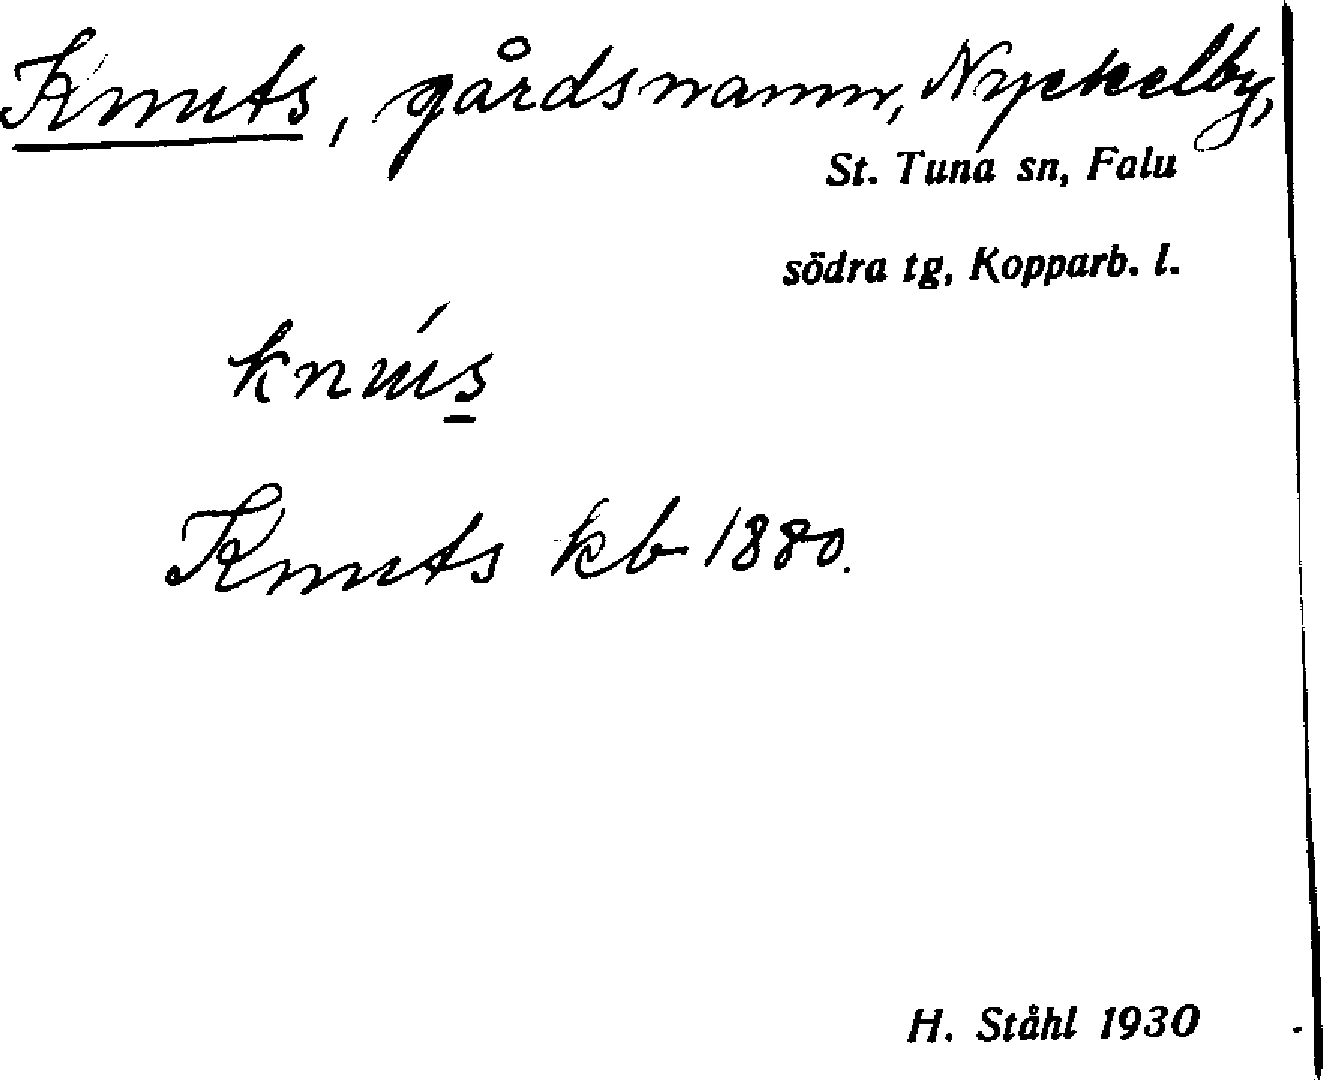 Knuts, gårdsnamn, Nyckelby,
St. Tuna sn, Falu
södra tg, Kopparb. l.
Knuts kb 1880.
H. Ståhl 1930